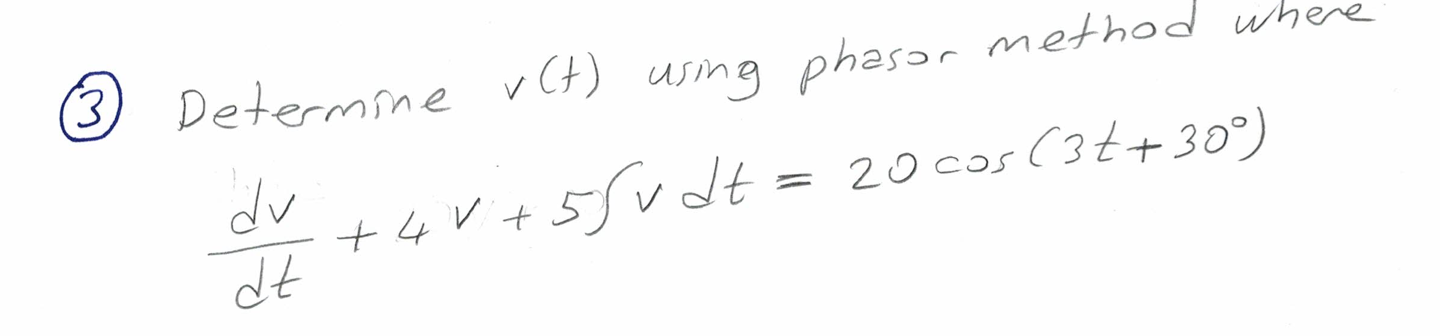 ③ Determine v(t) using phasor method where
dv/dt + 4v + 5∫v dt = 20 cos(3t+30°)